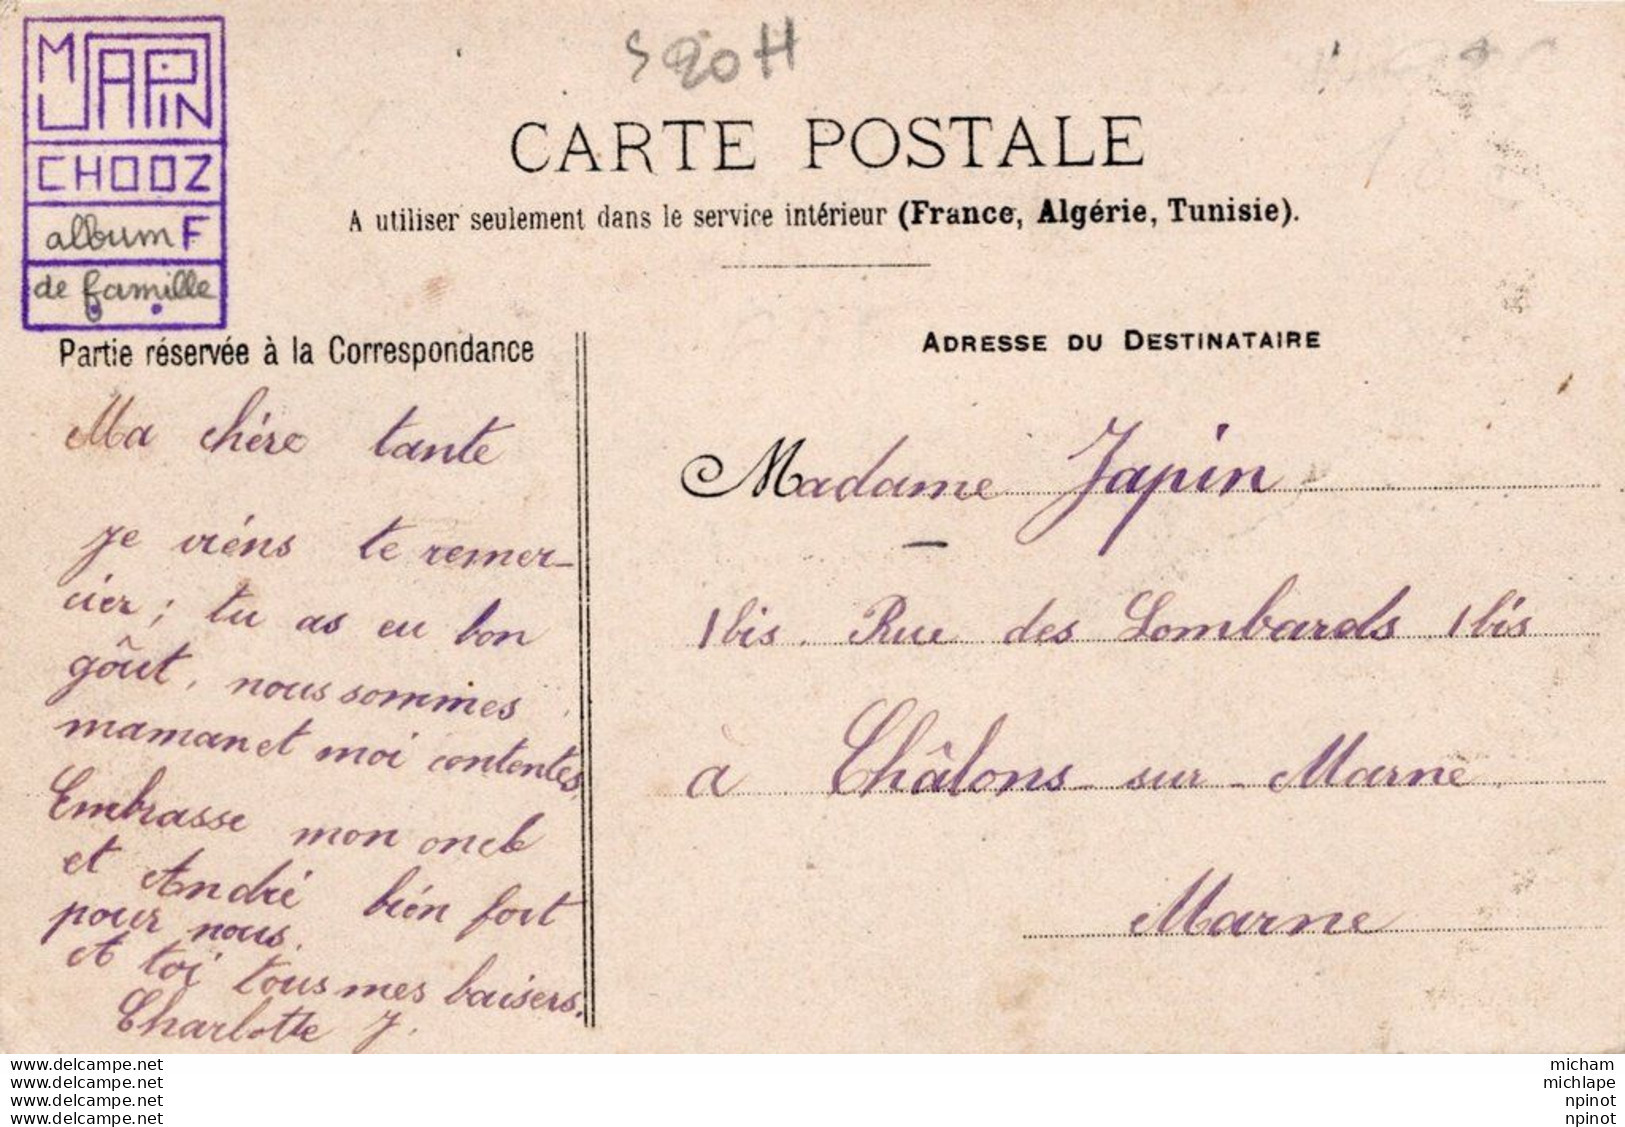 M JAPIN
CHOOZ
album F
de famille
CARTE POSTALE
A utiliser seulement dans le service intérieur (France, Algérie, Tunisie).
Partie réservée à la Correspondance
Ma chère tante
Je viéns te remer-
cier; tu as eu bon
goût, nous sommes
maman et moi contentes.
Embrasse mon oncle
et André bién fort
pour nous.
A toi tous mes baisers.
Charlotte J.
ADRESSE DU DESTINATAIRE
Madame Japin
1 bis. Rue des Lombards 1 bis
à Châlons-sur-Marne
Marne
www.delcampe.net
www.delcampe.net
www.delcampe.net
www.delcampe.net
micham
michlape
npinot
npinot